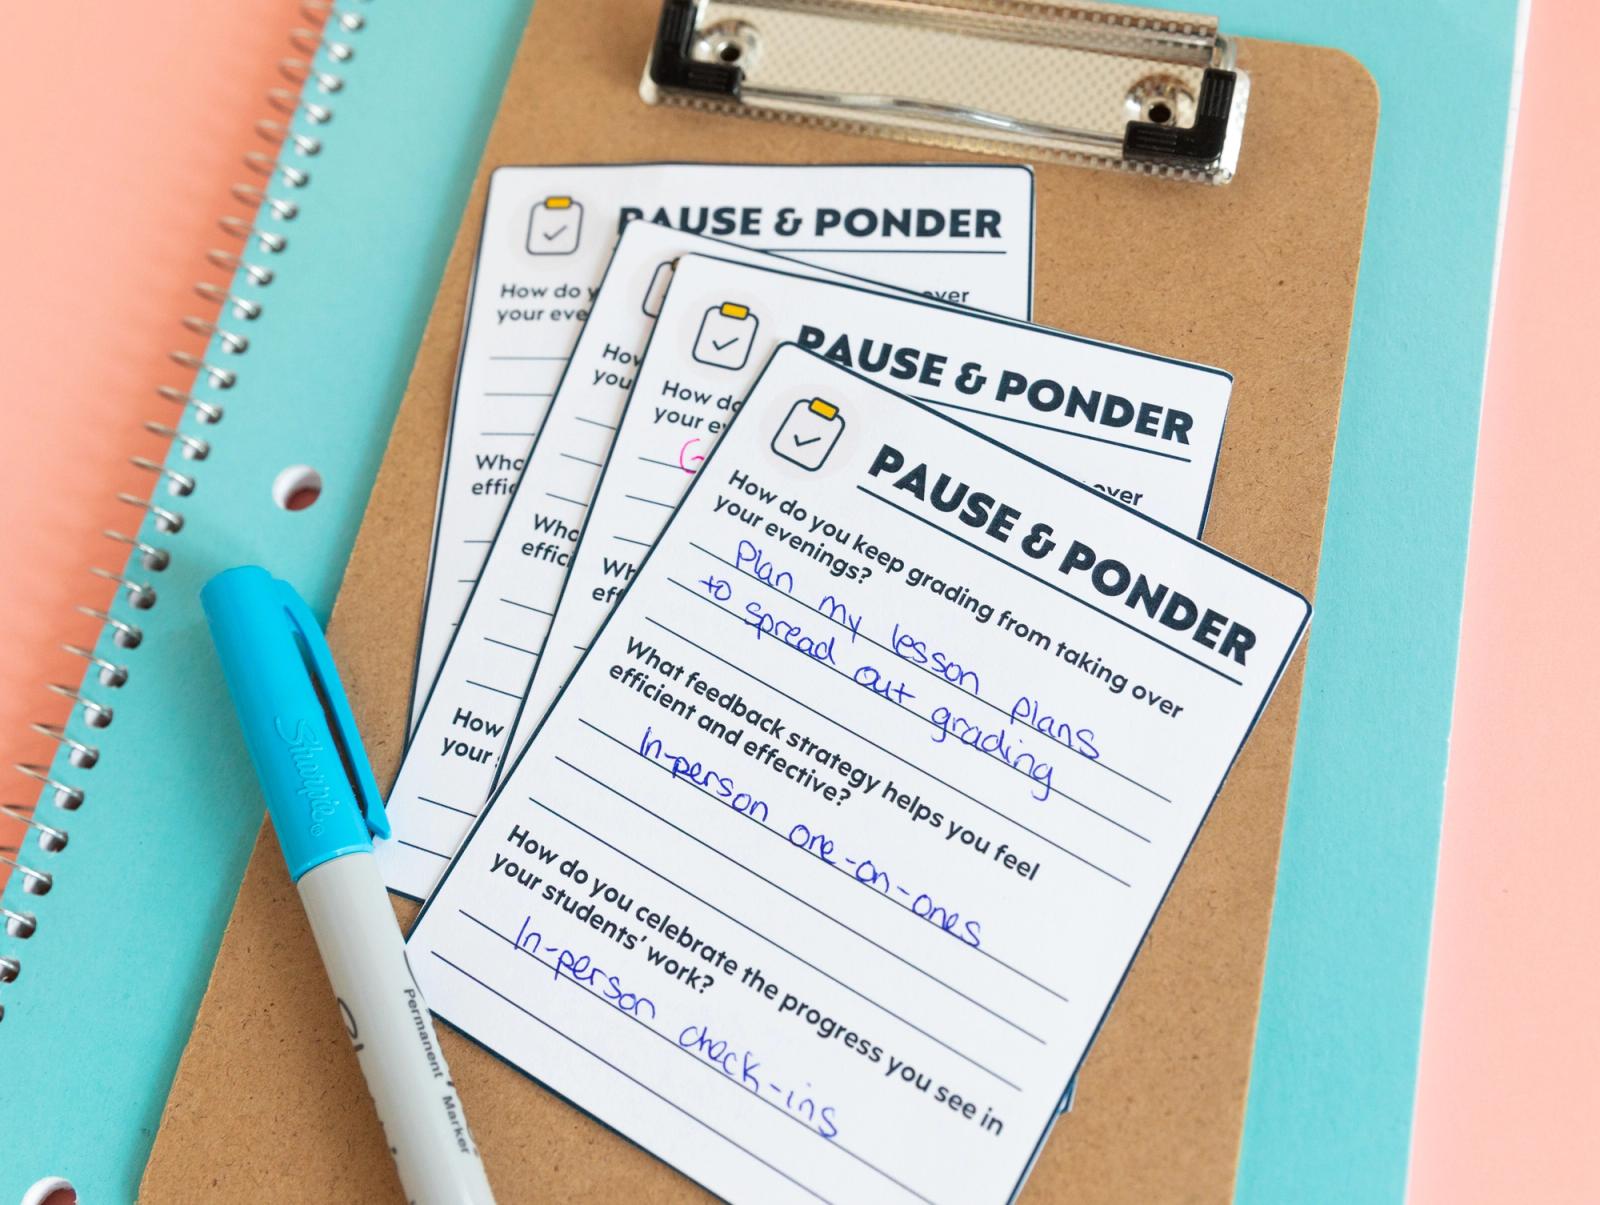 PAUSE & PONDER
How do y
your eve
over
Who
effic
How
you
Who
effic
How
your
PAUSE & PONDER
How do
your e
over
G
Wh
eff
PAUSE & PONDER
How do you keep grading from taking over
your evenings?
Plan my lesson plans
to spread out grading
What feedback strategy helps you feel
efficient and effective?
In-person one-on-ones
How do you celebrate the progress you see in
your students' work?
In-person check-ins
Sharpie
Permanent Marker